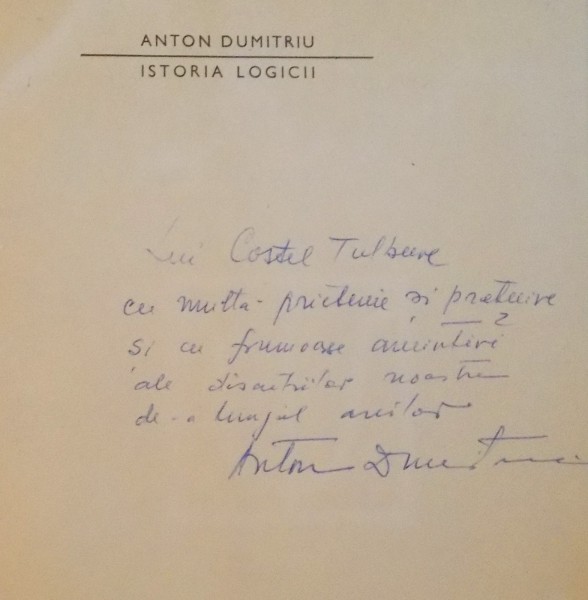 ANTON DUMITRIU
ISTORIA LOGICII
Lui Costel Tulbure
cu multă prietenie și prețuire
și cu frumoase amintiri
ale discuțiilor noastre
de-a lungul anilor
Anton Dumitriu